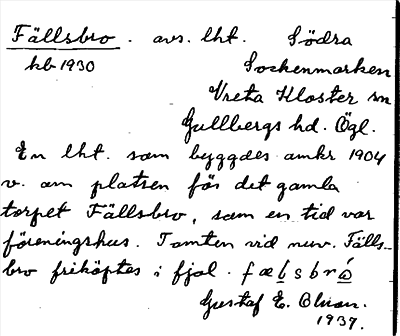 Fällsbro. avs. lht. Södra
kb 1930 Sockenmarken
Vreta Kloster sn
Gullbergs hd. Ögl.
En lht. som byggdes omkr 1904
v. om platsen för det gamla
torpet Fällsbro, som en tid var
föreningshus. Tomten vid nuv. Fälls-
bro friköptes i fjol.
Gustaf E. Olson.
1937.